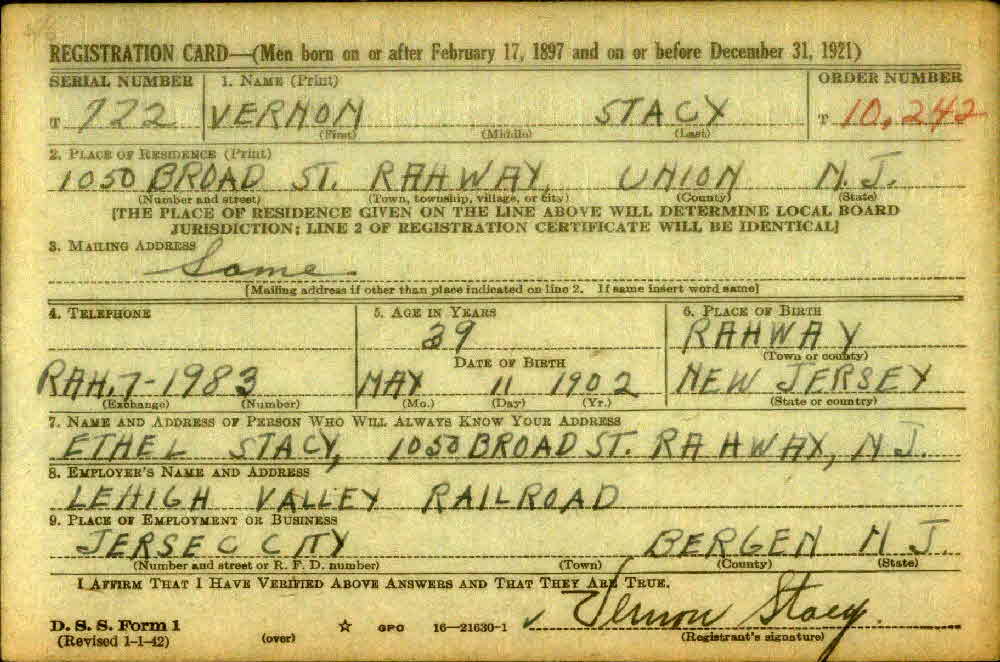 REGISTRATION CARD—(Men born on or after February 17, 1897 and on or before December 31, 1921)
SERIAL NUMBER 1. NAME (Print) ORDER NUMBER
T 722 VERNON STACY T 10,242
(First) (Middle) (Last)
2. PLACE OF RESIDENCE (Print)
1050 BROAD ST. RAHWAY, UNION N.J.
(Number and street) (Town, township, village, or city) (County) (State)
[THE PLACE OF RESIDENCE GIVEN ON THE LINE ABOVE WILL DETERMINE LOCAL BOARD
JURISDICTION; LINE 2 OF REGISTRATION CERTIFICATE WILL BE IDENTICAL]
3. MAILING ADDRESS
Same
[Mailing address if other than place indicated on line 2. If same insert word same]
4. TELEPHONE 5. AGE IN YEARS 6. PLACE OF BIRTH
39 RAHWAY
DATE OF BIRTH (Town or county)
RAH. 7-1983 MAY 11 1902 NEW JERSEY
(Exchange) (Number) (Mo.) (Day) (Yr.) (State or country)
7. NAME AND ADDRESS OF PERSON WHO WILL ALWAYS KNOW YOUR ADDRESS
ETHEL STACY, 1050 BROAD ST. RAHWAY, N.J.
8. EMPLOYER'S NAME AND ADDRESS
LEHIGH VALLEY RAILROAD
9. PLACE OF EMPLOYMENT OR BUSINESS
JERSEC CITY BERGEN N.J.
(Number and street or R. F. D. number) (Town) (County) (State)
I AFFIRM THAT I HAVE VERIFIED ABOVE ANSWERS AND THAT THEY ARE TRUE.
Vernon Stacy
D. S. S. Form 1
(Revised 1-1-42) (over) ☆ GPO 16—21630-1 (Registrant's signature)